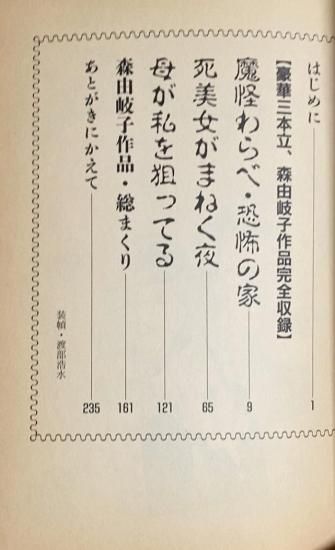 はじめに 1
【豪華三本立、森由岐子作品完全収録】
魔怪わらべ・恐怖の家 9
死美女がまねく夜 65
母が私を狙ってる 121
森由岐子作品・総まくり 161
あとがきにかえて 235
装幀・渡部浩水